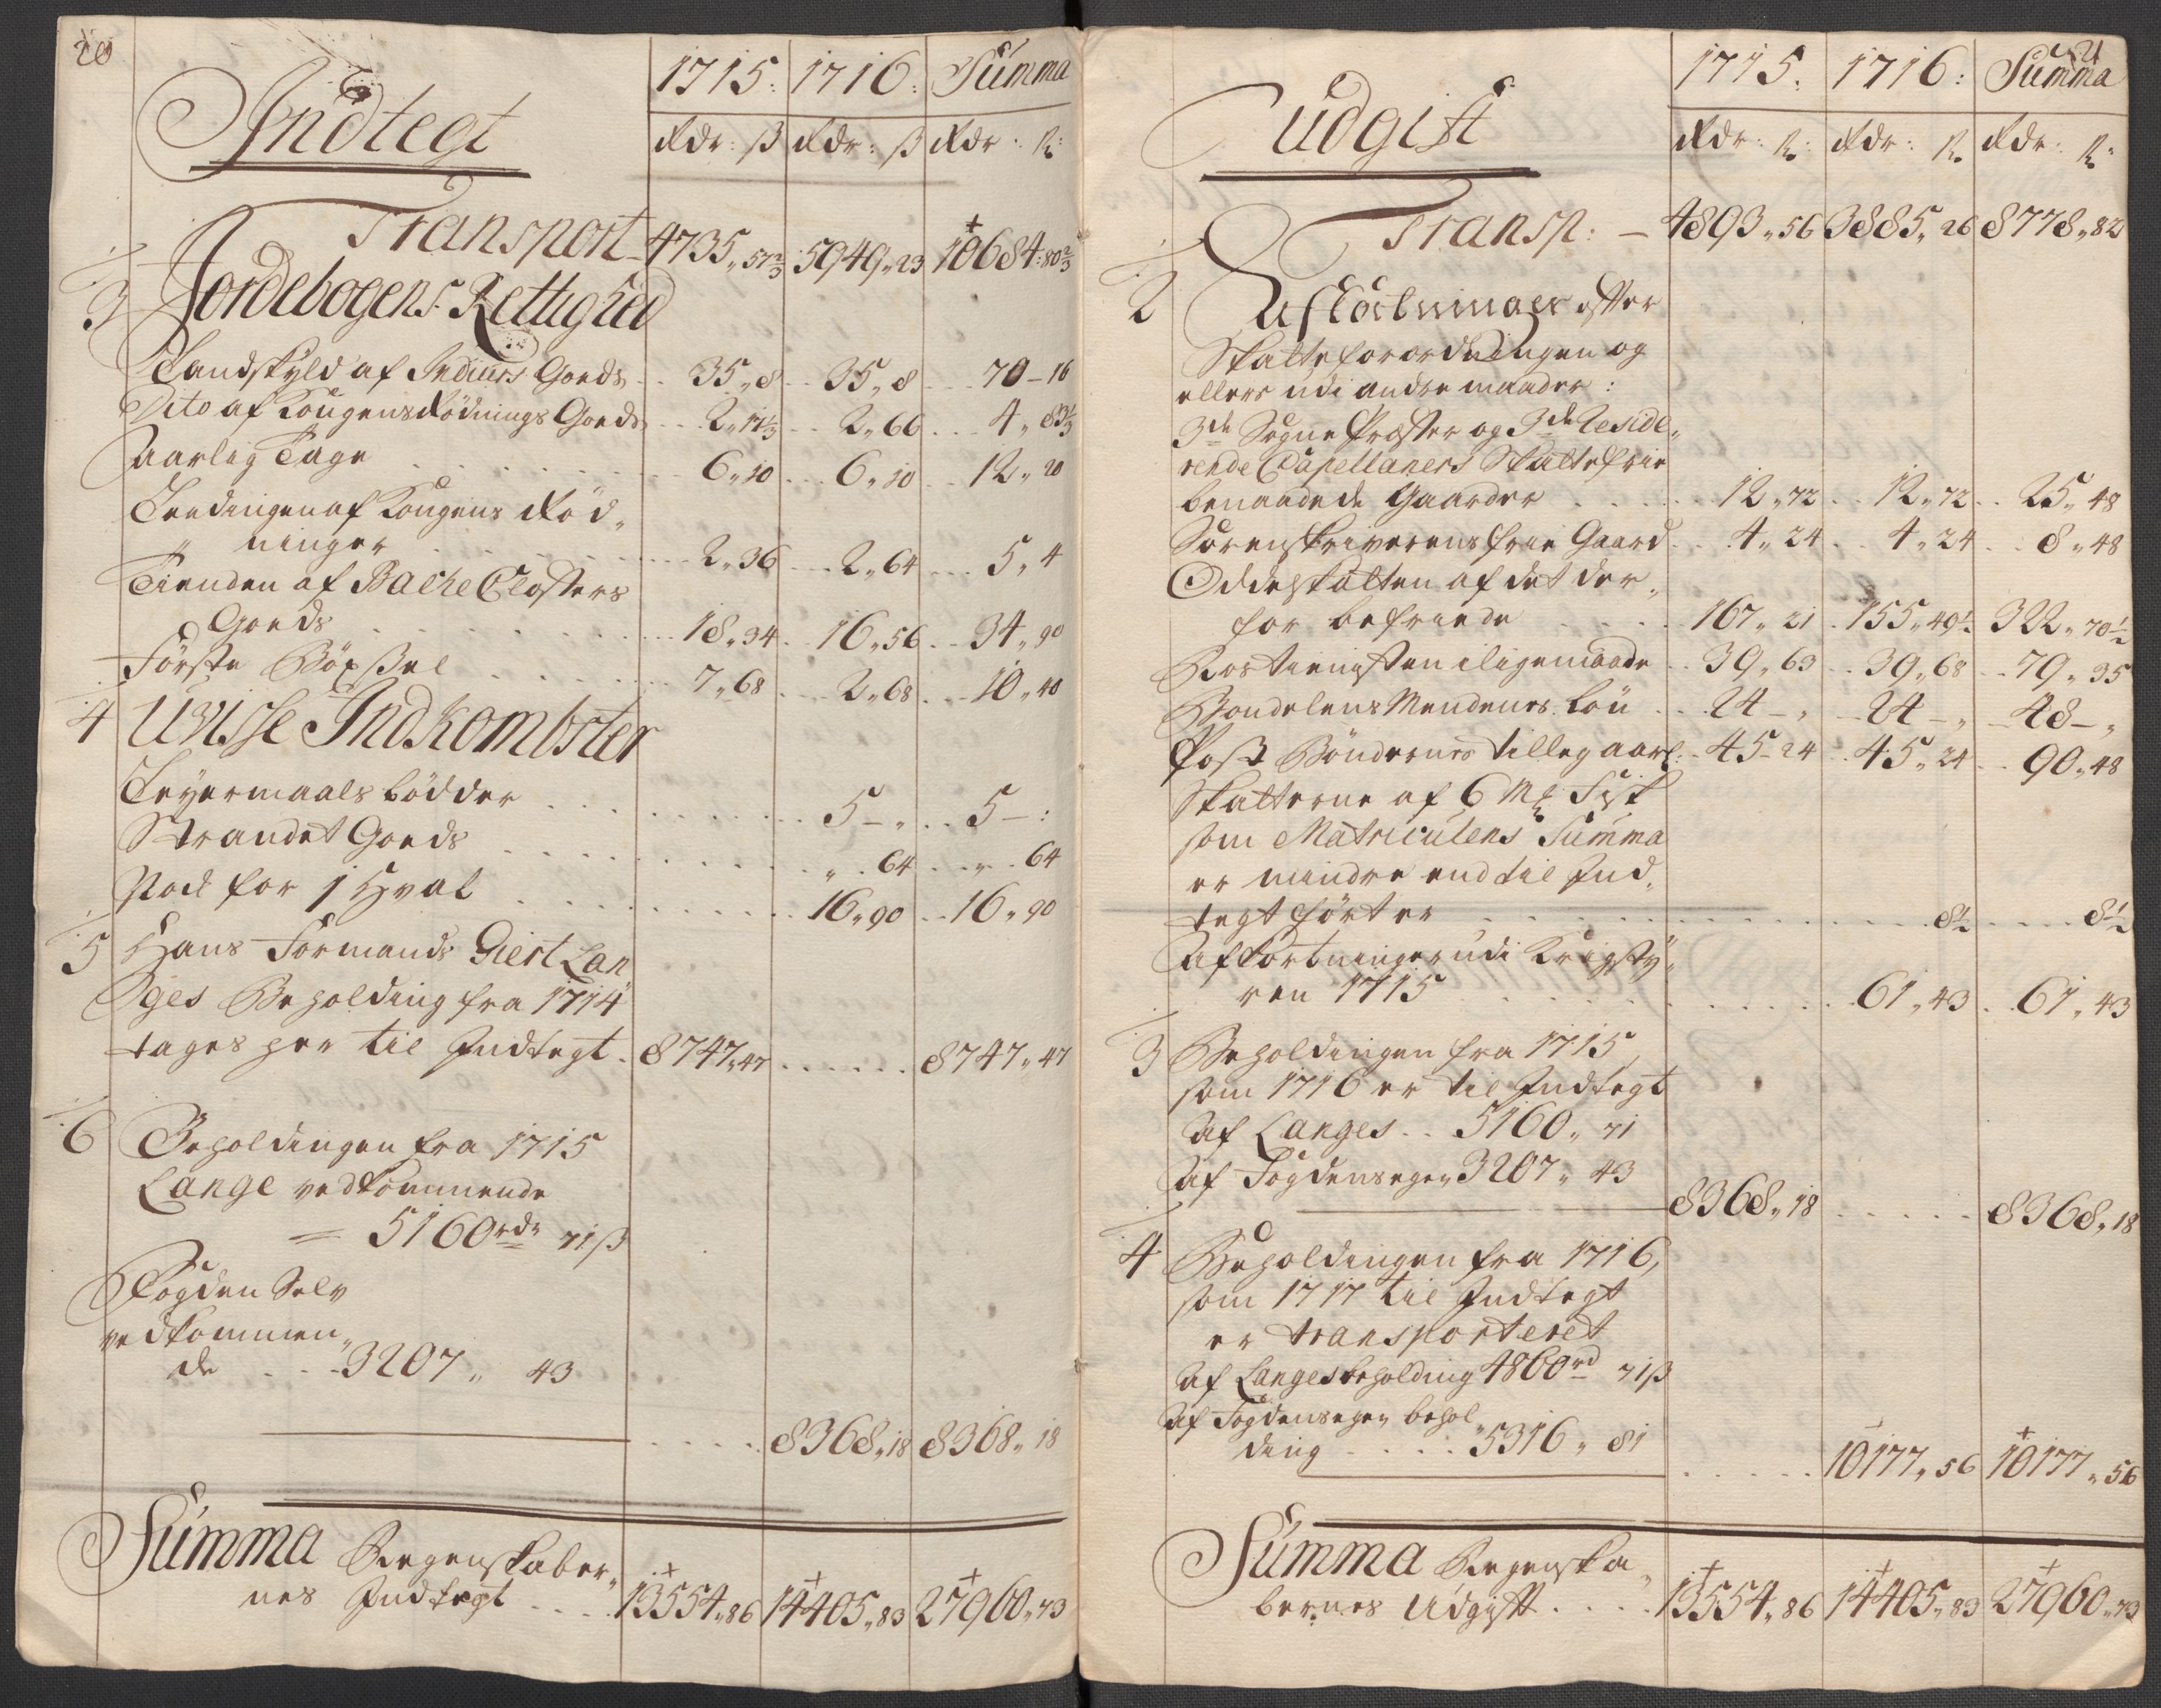 20
Indtegt
1715: 1716: Summa
Rdr: ß Rdr: ß Rdr: ß:
Transport 4735„57⅔ 5949„23 10684:80⅔
3 Jordebogens Rettighed
Landskyld af Goeds 35„8 35„8 70-16
Dito af Kongens Rödnings Goeds 2„17⅓ 2„66 4„83⅓
Aarlig Tage 6„10 6„10 12„20
Leedingen af Kongens Röd„
ninger 2„36 2„64 5„4
Tienden af Bache Closters
Goeds 18„34 16„56 34„90
Förste Böxsel 7„68 2„68 10„40
4 Uvisse Indkombster
Leyermaals bödder 5-„ 5-:
Strandet Goeds „64 „64
for 1 Hval 16„90 16„90
5 Hans Formands Giert Lan
ges Beholding fra 1714
tages her til Indtegt 8747„47 8747„47
6 Beholdingen fra 1715
Lange vedkommende
= 5160rdr 71ß
Fogden Selv
vedkommen„
de 3207„ 43
8368„18 8368„18
Summa Regenskaber„
nes Indtegt 13554„86 14405„83 27960„73
21
Udgift
1715: 1716: Summa
Rdr: ß: Rdr: ß Rdr: ß:
Transp: 4893„56 3885„26 8778„82
2 Afkortninger efter
Skatteforordningen og
ellers udi andre maader:
3de Sogne Præster og 3de Reside„
rende Capellaners Skattefrie
benaadede Gaarder 12„72 12„72 25„48
Sorenskriverens frie Gaard 4„24 4„24 8„48
Oddelskatten af det der„
for befriede 167„21 155„49½ 322„70½
Rostienisten iligemaade 39„63 39„68 79„35
Bondelens Mendenes Lön 24-„ 24-„ 48-„
Post Böndernes tilleg aarl: 45-24 45„24 90„48
Skatterne af 6 Mk Fisk
som Matriculens Summa
er mindre end til Ind„
tegt fört er 8½ 8½
Afkortninger udi Krigsty„
ren 1715 61„43 61„43
3 Beholdingen fra 1715,
som 1716 er til Indtegt
Af Langes 5160„71
Af Fogdens egen 3207„43
8368„18 8368„18
4 Beholdingen fra 1716,
som 1717 til Indtegt
er transporteret
Af Langes beholding 4860rd 71ß
Af Fogdens egen behol„
ding 5316„81
10177„56 10177„56
Summa Regenska„
bernes Udgift 13554„86 14405„83 27960„73